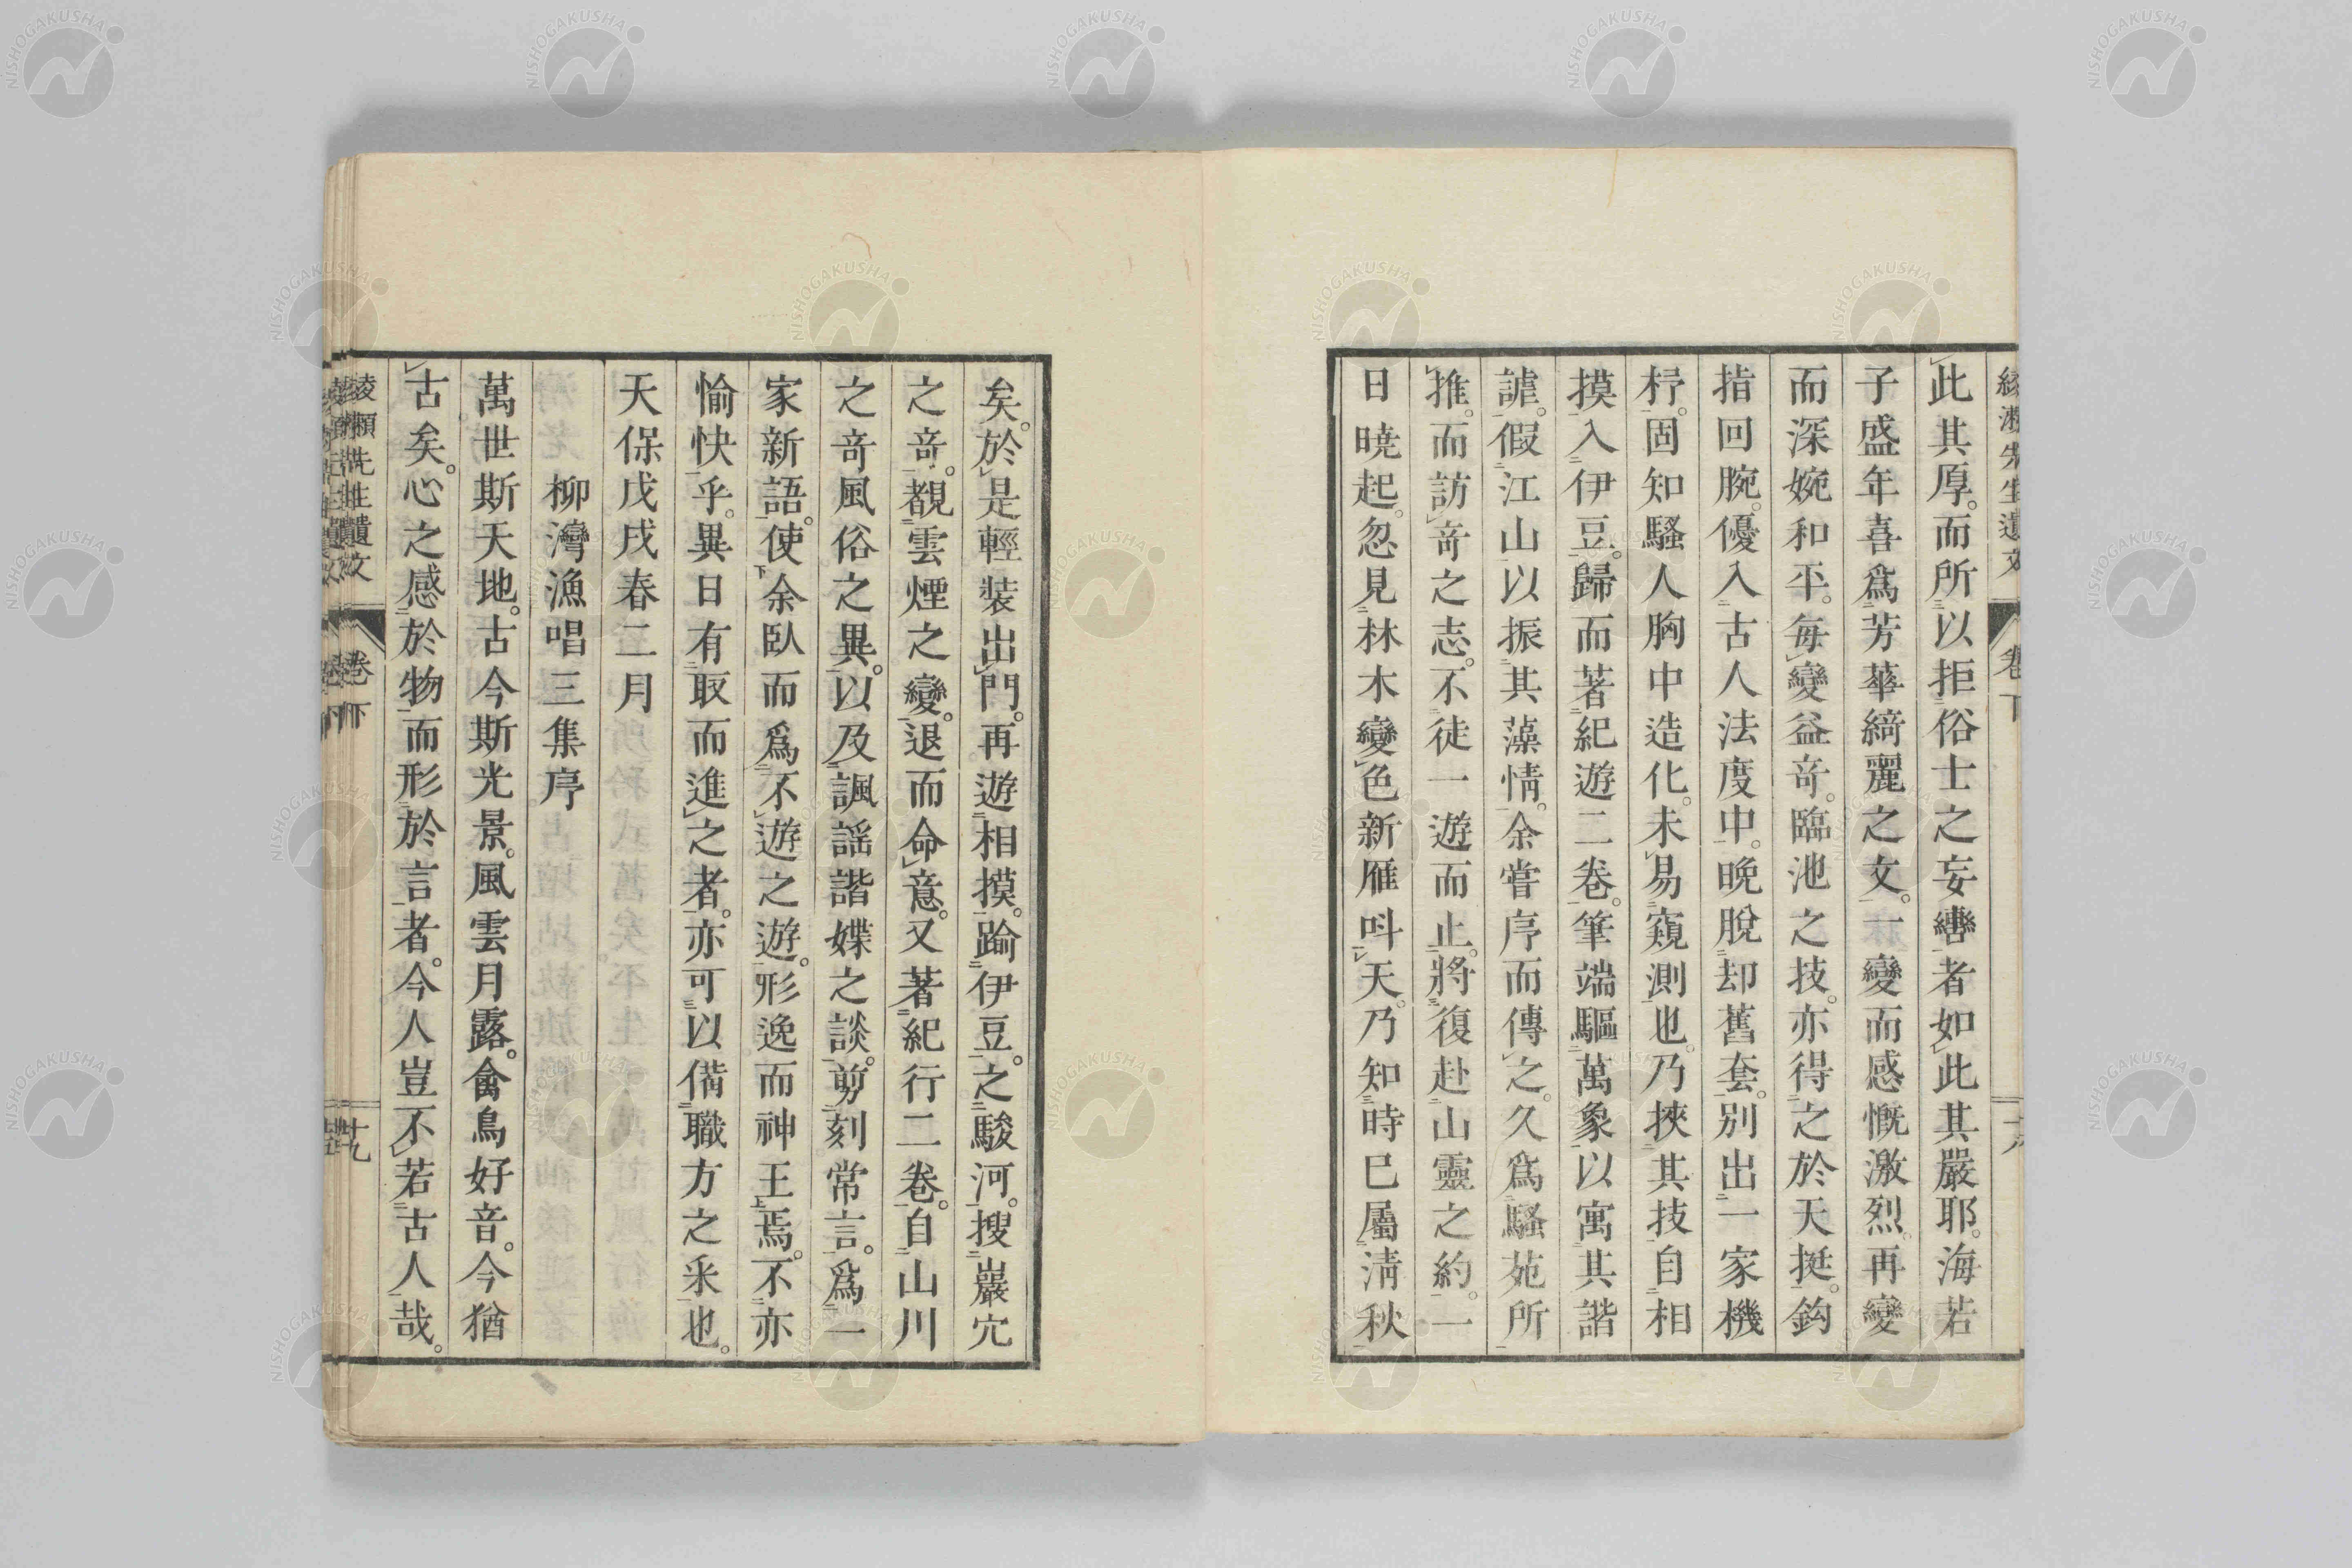 此其厚。而所以拒俗士之妄轡者如此其嚴耶。海若
子盛年喜爲芳華綺麗之文。一變而感慨激烈。再變
而深婉和平。每變益奇。臨池之技。亦得之於天挺。鈎
指回腕。優入古人法度中。晩脫却舊套。別出一家機
杼。固知騷人胸中造化。未易窺測也。乃挾其技自相
摸入伊豆。歸而著紀遊二卷。筆端驅萬象以寓其諧
謔。假江山以振其藻情。余嘗序而傳之。久爲騷苑所
推。而訪奇之志。不徒一遊而止。將復赴山靈之約。一
日曉起。忽見林木變色新雁呌天。乃知時已屬淸秋
矣。於是輕裝出門。再遊相摸。踰伊豆。之駿河。搜巖穴
之奇。覩雲煙之變。退而命意。又著紀行二卷。自山川
之奇風俗之異。以及諷謠諧媟之談。剪刻常言。爲一
家新語。使余臥而爲不遊之遊。形逸而神王焉。不亦
愉快乎。異日有取而進之者。亦可以備職方之釆也。
天保戊戌春二月
柳灣漁唱三集序
萬世斯天地。古今斯光景。風雲月露。禽鳥好音。今猶
古矣。心之感於物而形於言者。今人豈不若古人哉。
綾瀨先生遺文
卷下
十九
綾瀨先生遺文
卷下
十八
NISHOGAKUSHA